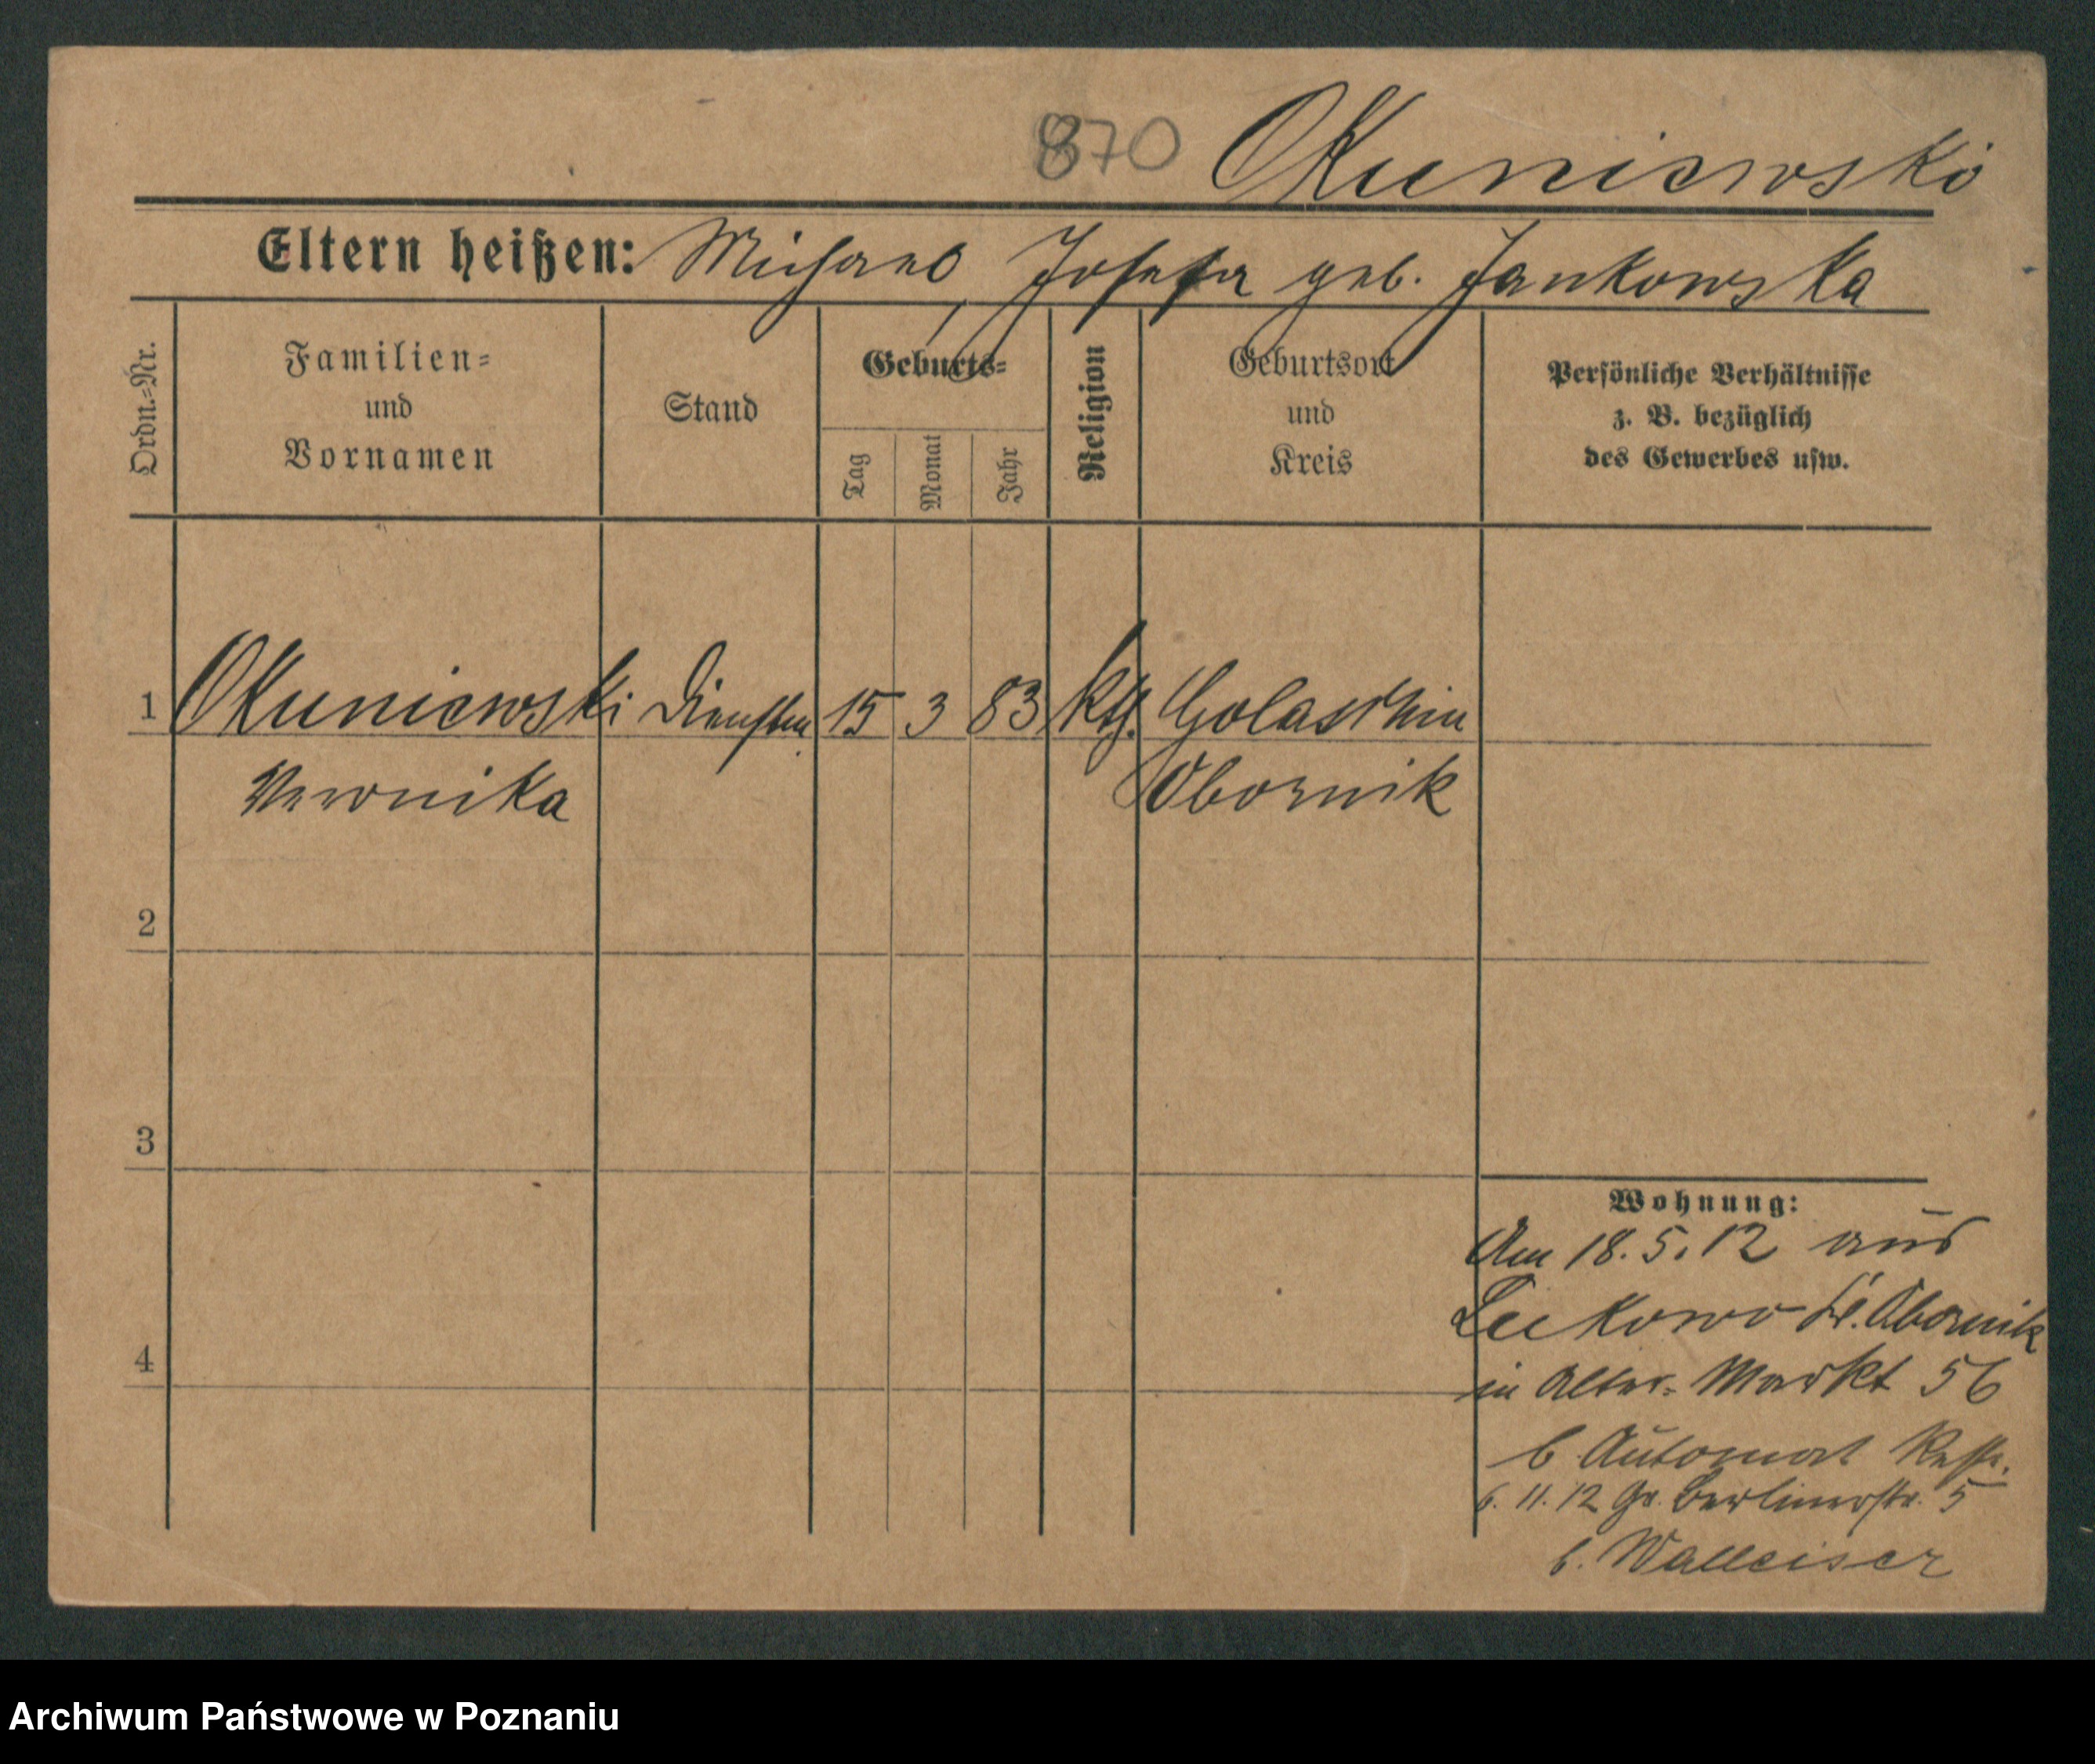 870 Okuniewski
Eltern heißen: Michael, Josefa geb. Jankowska
Ordn.=Nr.
Familien=
und
Vornamen
Stand
Geburts=
Tag
Monat
Jahr
Religion
Geburtsort
und
Kreis
Persönliche Verhältnisse
z. B. bezüglich
des Gewerbes usw.
1 Okuniewski 15 3 83 kth. Golaschin
Veronika Obornik
2
3
4
Wohnung:
Am 18.5.12 aus
Lukowo Kr. Obornik
in Alter-Markt 56
b. Automat Restr.
6.11.12 Gr. Berlinerstr. 5
b. Walleiser
Archiwum Państwowe w Poznaniu